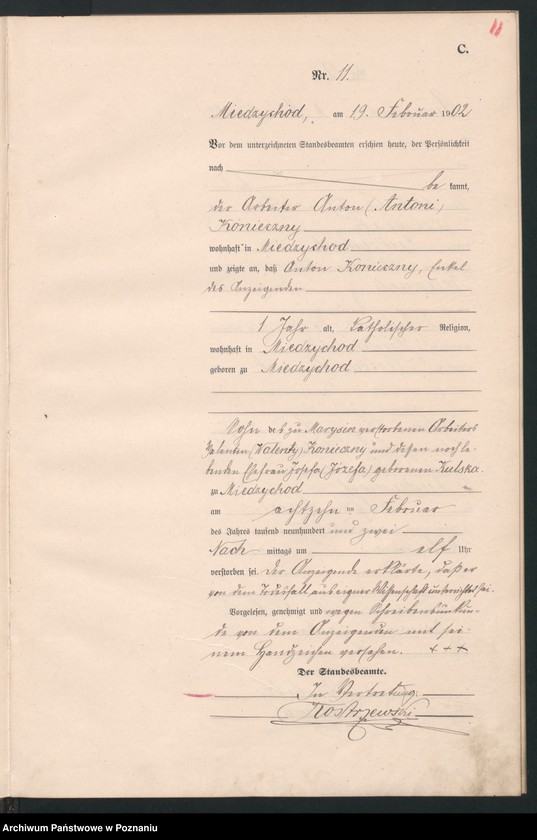 11
C.
Nr. 11.
Miedzychod, am 19. Februar 1902
Vor dem unterzeichneten Standesbeamten erschien heute, der Persönlichkeit
nach
be kannt,
der Arbeiter Anton (Antoni)
Konieczny
wohnhaft in Miedzychod
und zeigte an, daß Anton Konieczny, Enkel
des Anzeigenden
1 Jahr alt, katholischer Religion,
wohnhaft in Miedzychod
geboren zu Miedzychod
Sohn des zu Marysin verstorbenen Arbeiters
Valentin (Walenty) Konieczny und dessen noch le-
benden Ehefrau Josefa (Jozefa) geborenen Kulska.
zu Miedzychod
am achtzehn ten Februar
des Jahres tausend neunhundert und zwei
Nach mittags um elf Uhr
verstorben sei. Der Anzeigende erklärte, daß er
von dem Todesfall aus eigner Wissenschaft unterrichtet sei.
Vorgelesen, genehmigt und wegen Schreibensunkun-
de von dem Anzeigenden mit sei-
nem Handzeichen versehen. + + +
Der Standesbeamte.
In Vertretung.
Kostrzewski
Archiwum Państwowe w Poznaniu